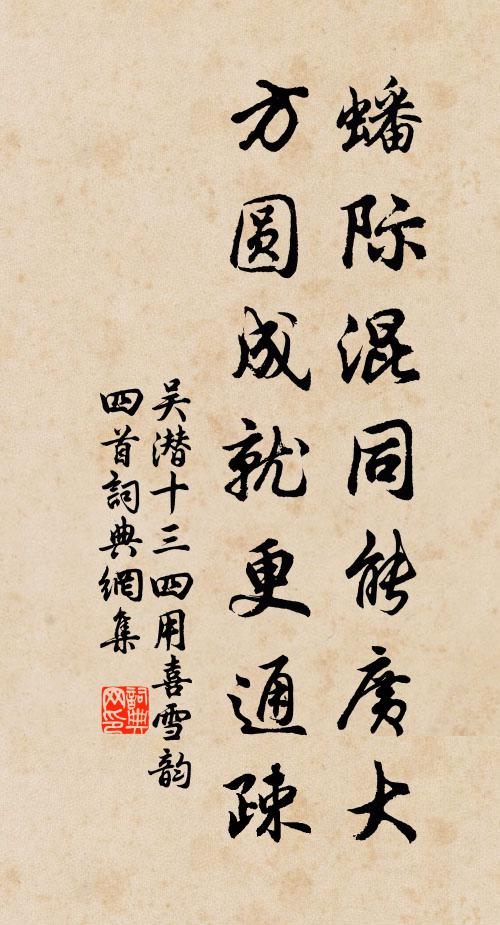 蟠际混同能廣大
方圆成就更通疎
吴潜十三四用喜雪韵
四首詞典網集
詞典网印